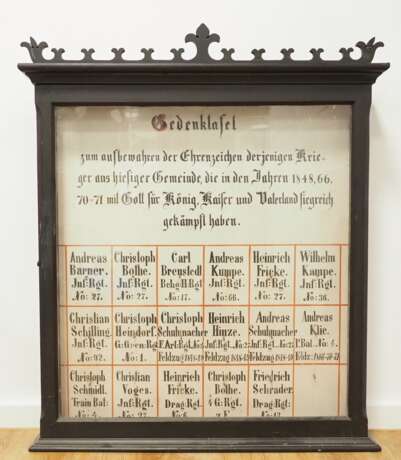 Gedenktafel
zum aufbewahren der Ehrenzeichen derjenigen Krie-
ger aus hiesiger Gemeinde, die in den Jahren 1848, 66,
70-71 mit Gott für König, Kaiser und Vaterland siegreich
gekämpft haben.
Andreas Christoph Carl Andreas Heinrich Wilhelm
Barner. Bothe. Breustedt Kumpe. Fricke. Kumpe.
Inf: Rgt. Inf: Rgt. Inf: Rgt. Inf: Rgt. Inf: Rgt.
No: 27. No: 27. No: 17. No: 66. No: 27. No: 36.
Christian Christoph Christoph Heinrich Andreas Andreas
Schilling Heindorf. Schuhmacher Hinze. Schuhmacher Klie.
Inf: Rgt. Inf: Rgt: 27 Bat. No: 4.
No: 92. No: 1. Feldzug 1848-49 Feldzug 1848-49 Feldzug 1848-49
Christoph Christian Heinrich Christoph Friedrich
Schmidt. Voges. Fricke. Bothe. Schrader.
Train Bat: Inf: Rgt. Drag: Rgt: 4 G: Rgt. Drag: Rgt:
No: 4.